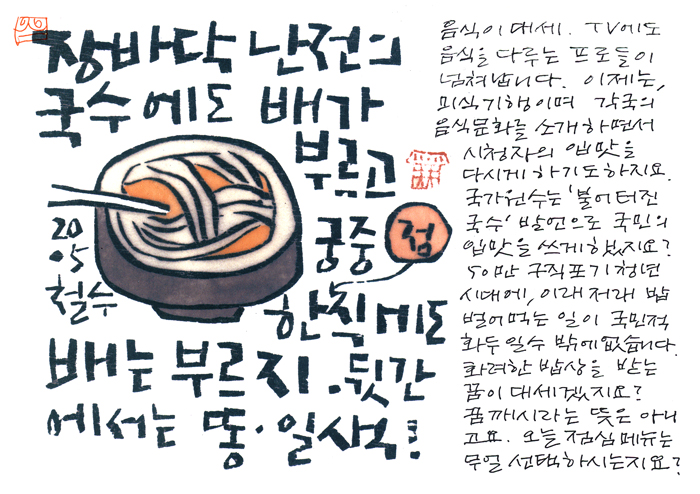 장바닥 난전의
국수에도 배가
부르고
궁중
점
한식에도
배는 부르지. 뒷간
에서는 똥·일색!
20
05
철수
음식이 대세. TV에도
음식을 다루는 프로들이
넘쳐납니다. 이제는,
외식기행이며 각국의
음식문화를 소개하면서
시청자의 입맛을
다시게 하기도하지요.
국가원수는 '불어터진
국수' 발언으로 국민의
입맛을 쓰게했지요?
50만 구직포기청년
시대에, 이래저래 밥
벌어먹는 일이 국민적
화두일수 밖에없습니다.
화려한 밥상을 받는
꿈이 대세겠지요?
꿈깨시라는 뜻은 아니
고요. 오늘 점심메뉴는
무얼 선택하시는지요?